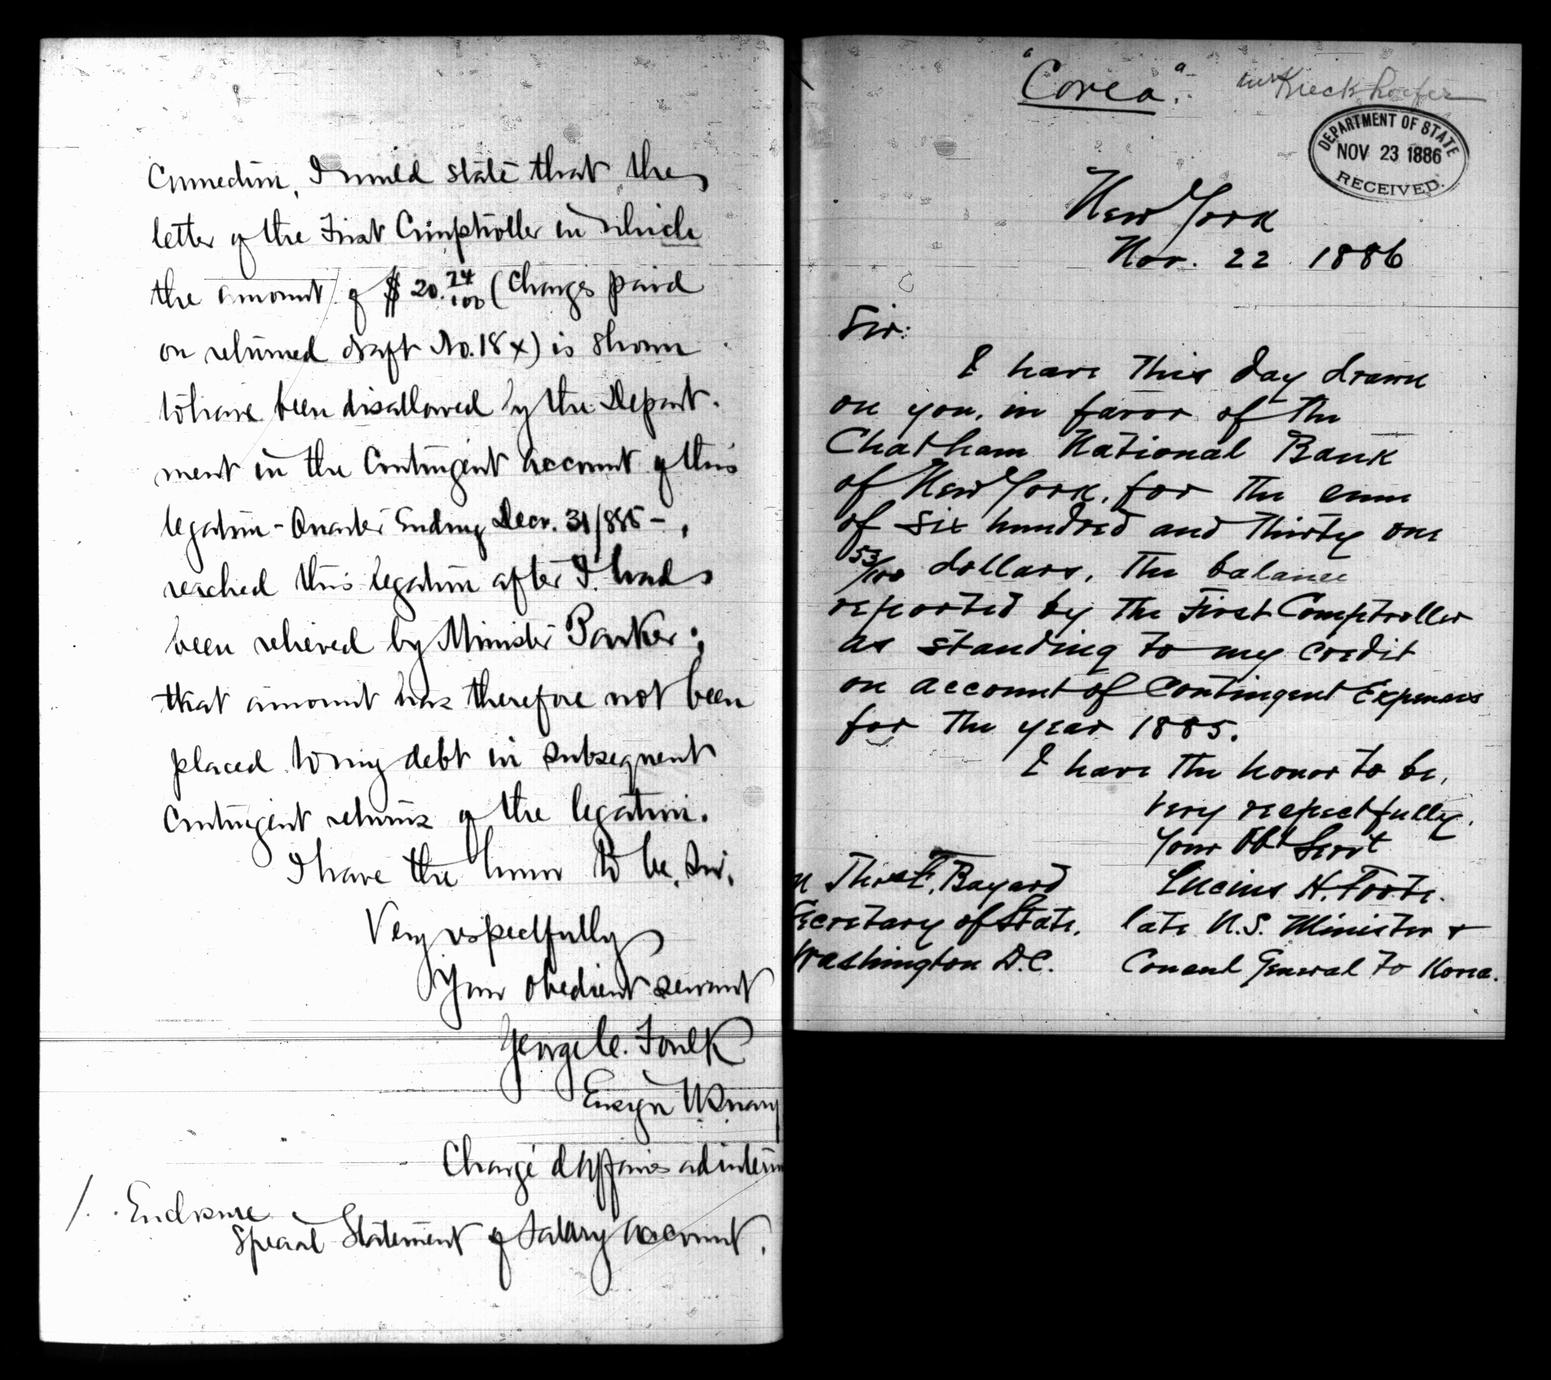 Connection, I would state that the
letter of the First Comptroller in which
the amount of $20.24/100 (Charges paid
on returned draft No. 18x) is shown
to have been disallowed by the Depart-
ment in the Contingent account of this
legation - Quarter Ending Decr. 31/885 -,
reached this legation after I had
been relieved by Minister Parker;
that amount has therefore not been
placed to my debt in subsequent
Contingent returns of the legation.
I have the honor to be, Sir,
Very respectfully
Your obedient servant
George C. Foulk
Ensign U.S. Navy
Chargé d'Affaires ad interim
1. Enclosure.
Special Statement of Salary Account.
"Corea".
Mr Kieckhoefer
DEPARTMENT OF STATE
NOV 23 1886
RECEIVED.
New York
Nov. 22 1886
Sir:
I have this day drawn
on you, in favor of the
Chatham National Bank
of New York, for the sum
of six hundred and thirty one
53/100 dollars, the balance
reported by the First Comptroller
as standing to my credit
on account of Contingent Expenses
for the year 1885.
I have the honor to be,
very respectfully,
Your Obt Servt
Lucius H. Foote.
late U.S. Minister &
Consul General to Korea.
n Thos F. Bayard
Secretary of State,
Washington D.C.